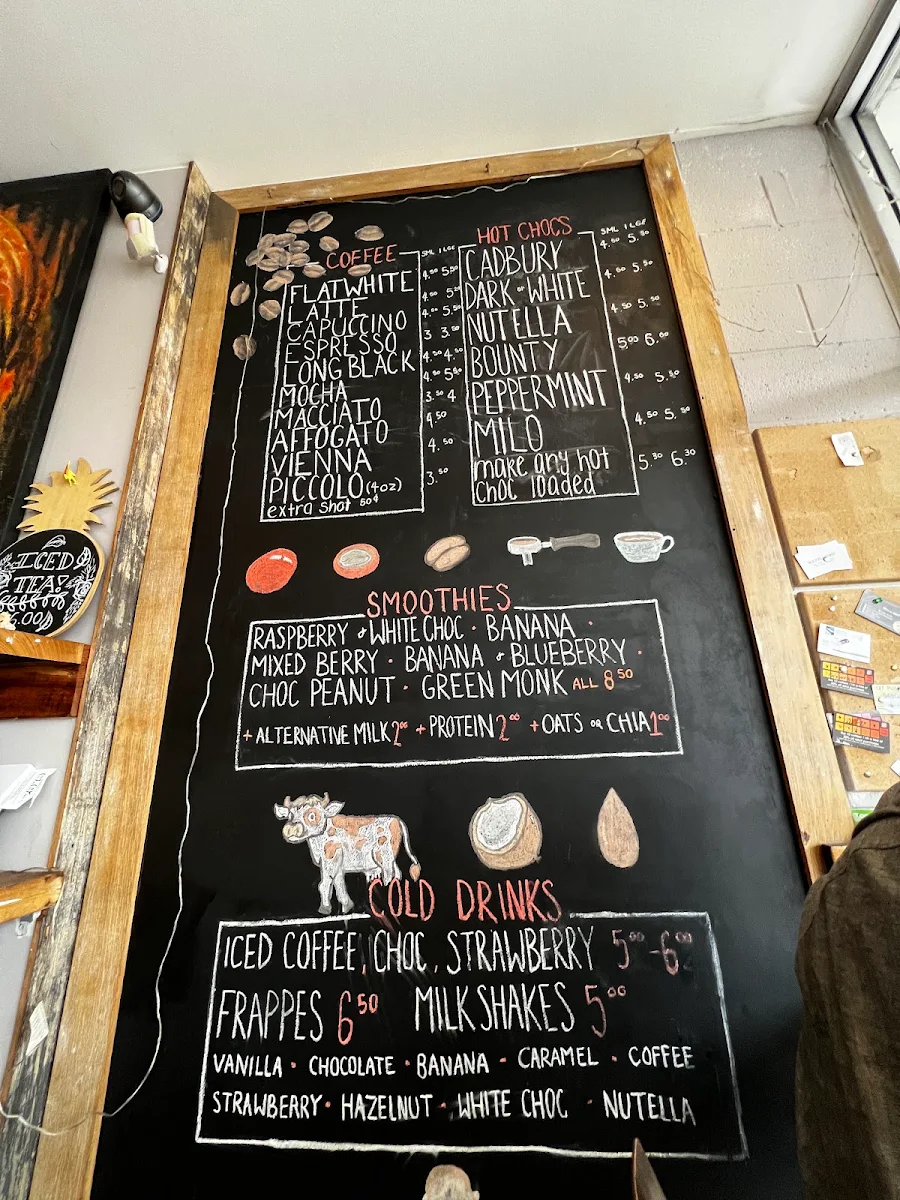 COFFEE
SML LGE
FLATWHITE 4.50 5.50
LATTE
CAPUCCINO
ESPRESSO 3 3.50
LONG BLACK
MOCHA
MACCIATO 3.50 4
AFFOGATO 4.50
VIENNA 4.50
PICCOLO (4oz) 3.50
extra shot 50¢
HOT CHOCS
SML LGE
CADBURY 4.50 5.50
DARK or WHITE 4.50 5.50
NUTELLA 4.50 5.50
BOUNTY 5.00 6.00
PEPPERMINT 4.50 5.50
MILO 4.50 5.50
make any hot
choc loaded 5.30 6.30
ICED
TEA!
6.00
SMOOTHIES
RASPBERRY & WHITE CHOC · BANANA ·
MIXED BERRY · BANANA & BLUEBERRY ·
CHOC PEANUT · GREEN MONK ALL 8 50
+ ALTERNATIVE MILK 2 00 + PROTEIN 2 00 + OATS OR CHIA 1 00
COLD DRINKS
ICED COFFEE, CHOC, STRAWBERRY 5 00 - 6 00
FRAPPES 6 50 MILKSHAKES 5 00
VANILLA · CHOCOLATE · BANANA · CARAMEL · COFFEE
STRAWBERRY · HAZELNUT · WHITE CHOC · NUTELLA